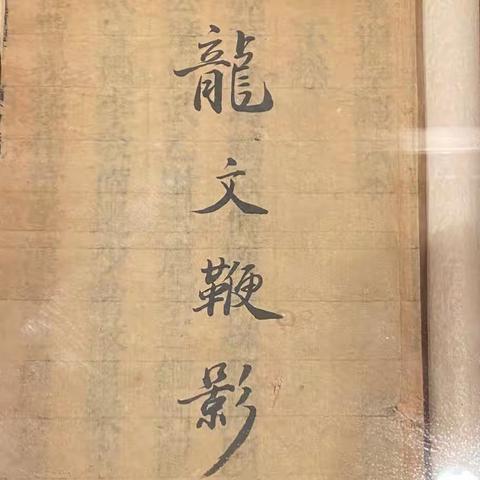 龍文鞭影